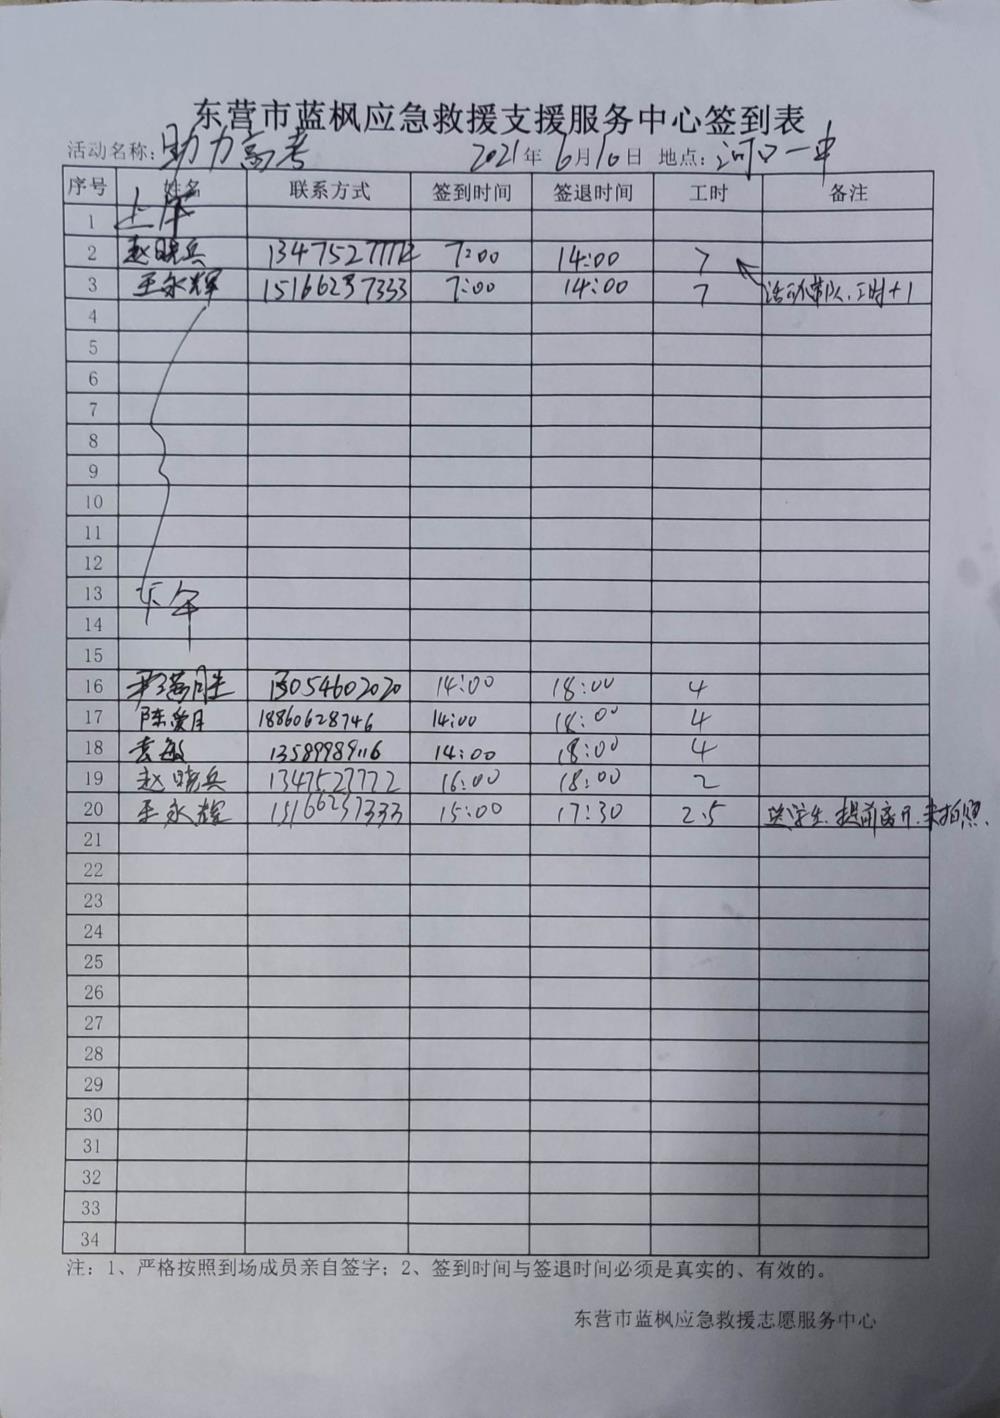 东营市蓝枫应急救援支援服务中心签到表
活动名称：助力高考 2021年 6月10日 地点：河口一中
序号 姓名 联系方式 签到时间 签退时间 工时 备注
1 上午
2 赵晓兵 13475277772 7:00 14:00 7
3 王永辉 15166237333 7:00 14:00 7 活动带队，工时+1
4
5
6
7
8
9
10
11
12
13 下午
14
15
16 13054602020 14:00 18:00 4
17 陈爱月 18860628746 14:00 18:00 4
18 袁敏 13589989116 14:00 18:00 4
19 赵晓兵 13475277772 16:00 18:00 2
20 王永辉 15166237333 15:00 17:30 2.5 送学生，提前离开，未拍照．
21
22
23
24
25
26
27
28
29
30
31
32
33
34
注：1、严格按照到场成员亲自签字；2、签到时间与签退时间必须是真实的、有效的。
东营市蓝枫应急救援志愿服务中心